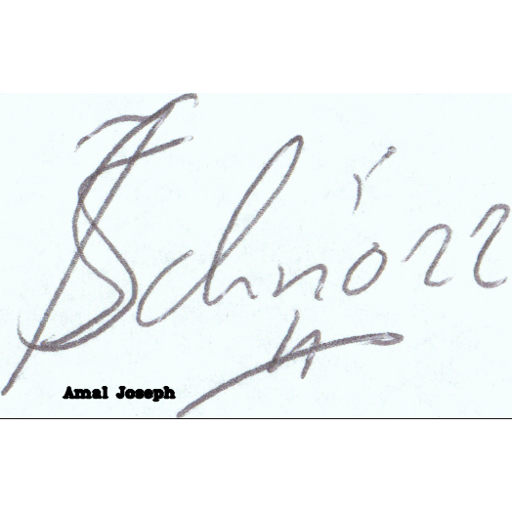 Schnörr
Amal Joseph